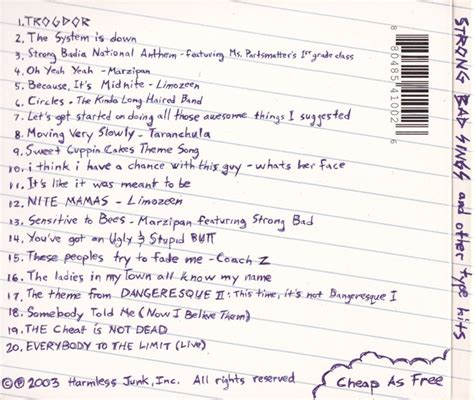 1. TROGDOR
2. The System is down
3. Strong Badia National Anthem - featuring Ms. Portsmatter's 1st grade class
4. Oh Yeah Yeah - Marzipan
5. Because, It's Midnite - Limozeen
6. Circles - The Kinda Long Haired Band
7. Let's get started on doing all those awesome things I suggested
8. Moving Very Slowly - Taranchula
9. Sweet Cuppin Cakes Theme Song
10. i think i have a chance with this guy - whats her face
11. It's like it was meant to be
12. NITE MAMAS - Limozeen
13. Sensitive to Bees - Marzipan featuring Strong Bad
14. You've got an Ugly & Stupid BUTT
15. These peoples try to fade me - Coach Z
16. The ladies in my Town all know my name
17. The theme from DANGERESQUE II: This time, it's not Dangeresque I
18. Somebody Told Me (Now I Belive Them)
19. THE Cheat is NOT DEAD
20. EVERYBODY TO THE LIMIT (Live)
©℗ 2003 Harmless Junk, Inc. All rights reserved
Cheap As Free
8 80485 41002 6
STRONG BAD SINGS and other type hits